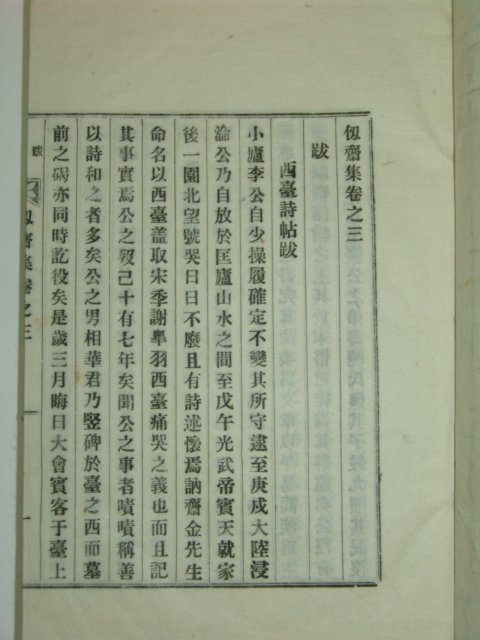 仭齋集卷之三
跋
西臺詩帖跋
小廬李公自少操履確定不變其所守逮至庚戌大陸浸
淪公乃自放於匡廬山水之間至戊午光武帝賓天就家
後一園北望號哭日日不廢且有詩述懷焉訥齋金先生
命名以西臺盖取宋季謝臯羽西臺痛哭之義也而且記
其事實焉公之歿已十有七年矣聞公之事者嘖嘖稱善
以詩和之者多矣公之男相華君乃竪碑於臺之西而墓
前之碣亦同時訖役矣是歲三月晦日大會賓客于臺上
跋
仭齋集卷之三
一